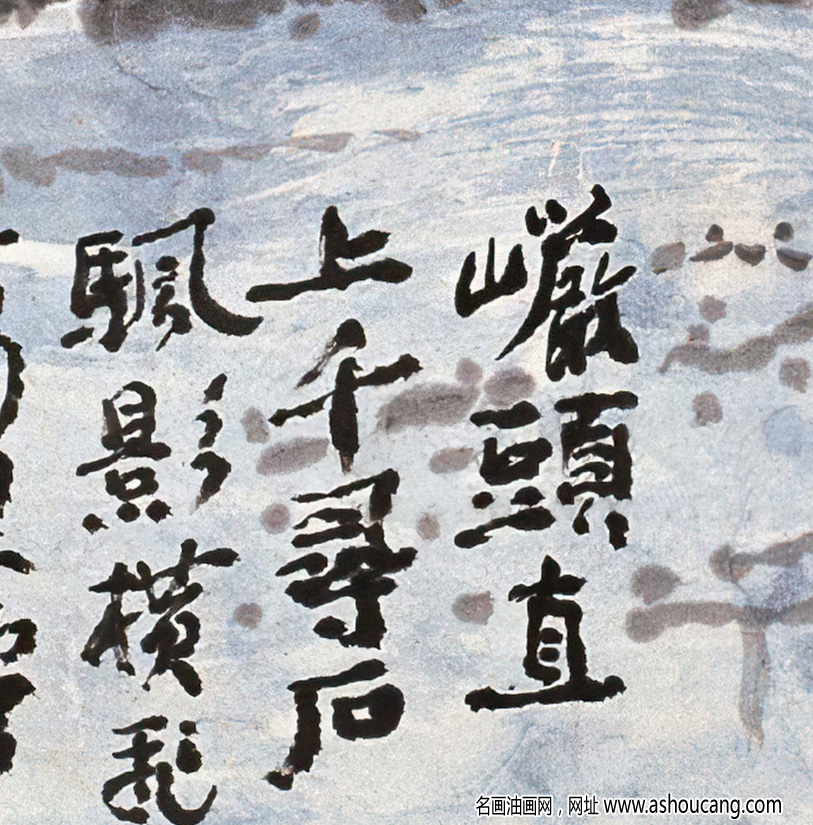 巗頭直
上千尋石
颿影橫
名画油画网，网址 www.ashoucang.com